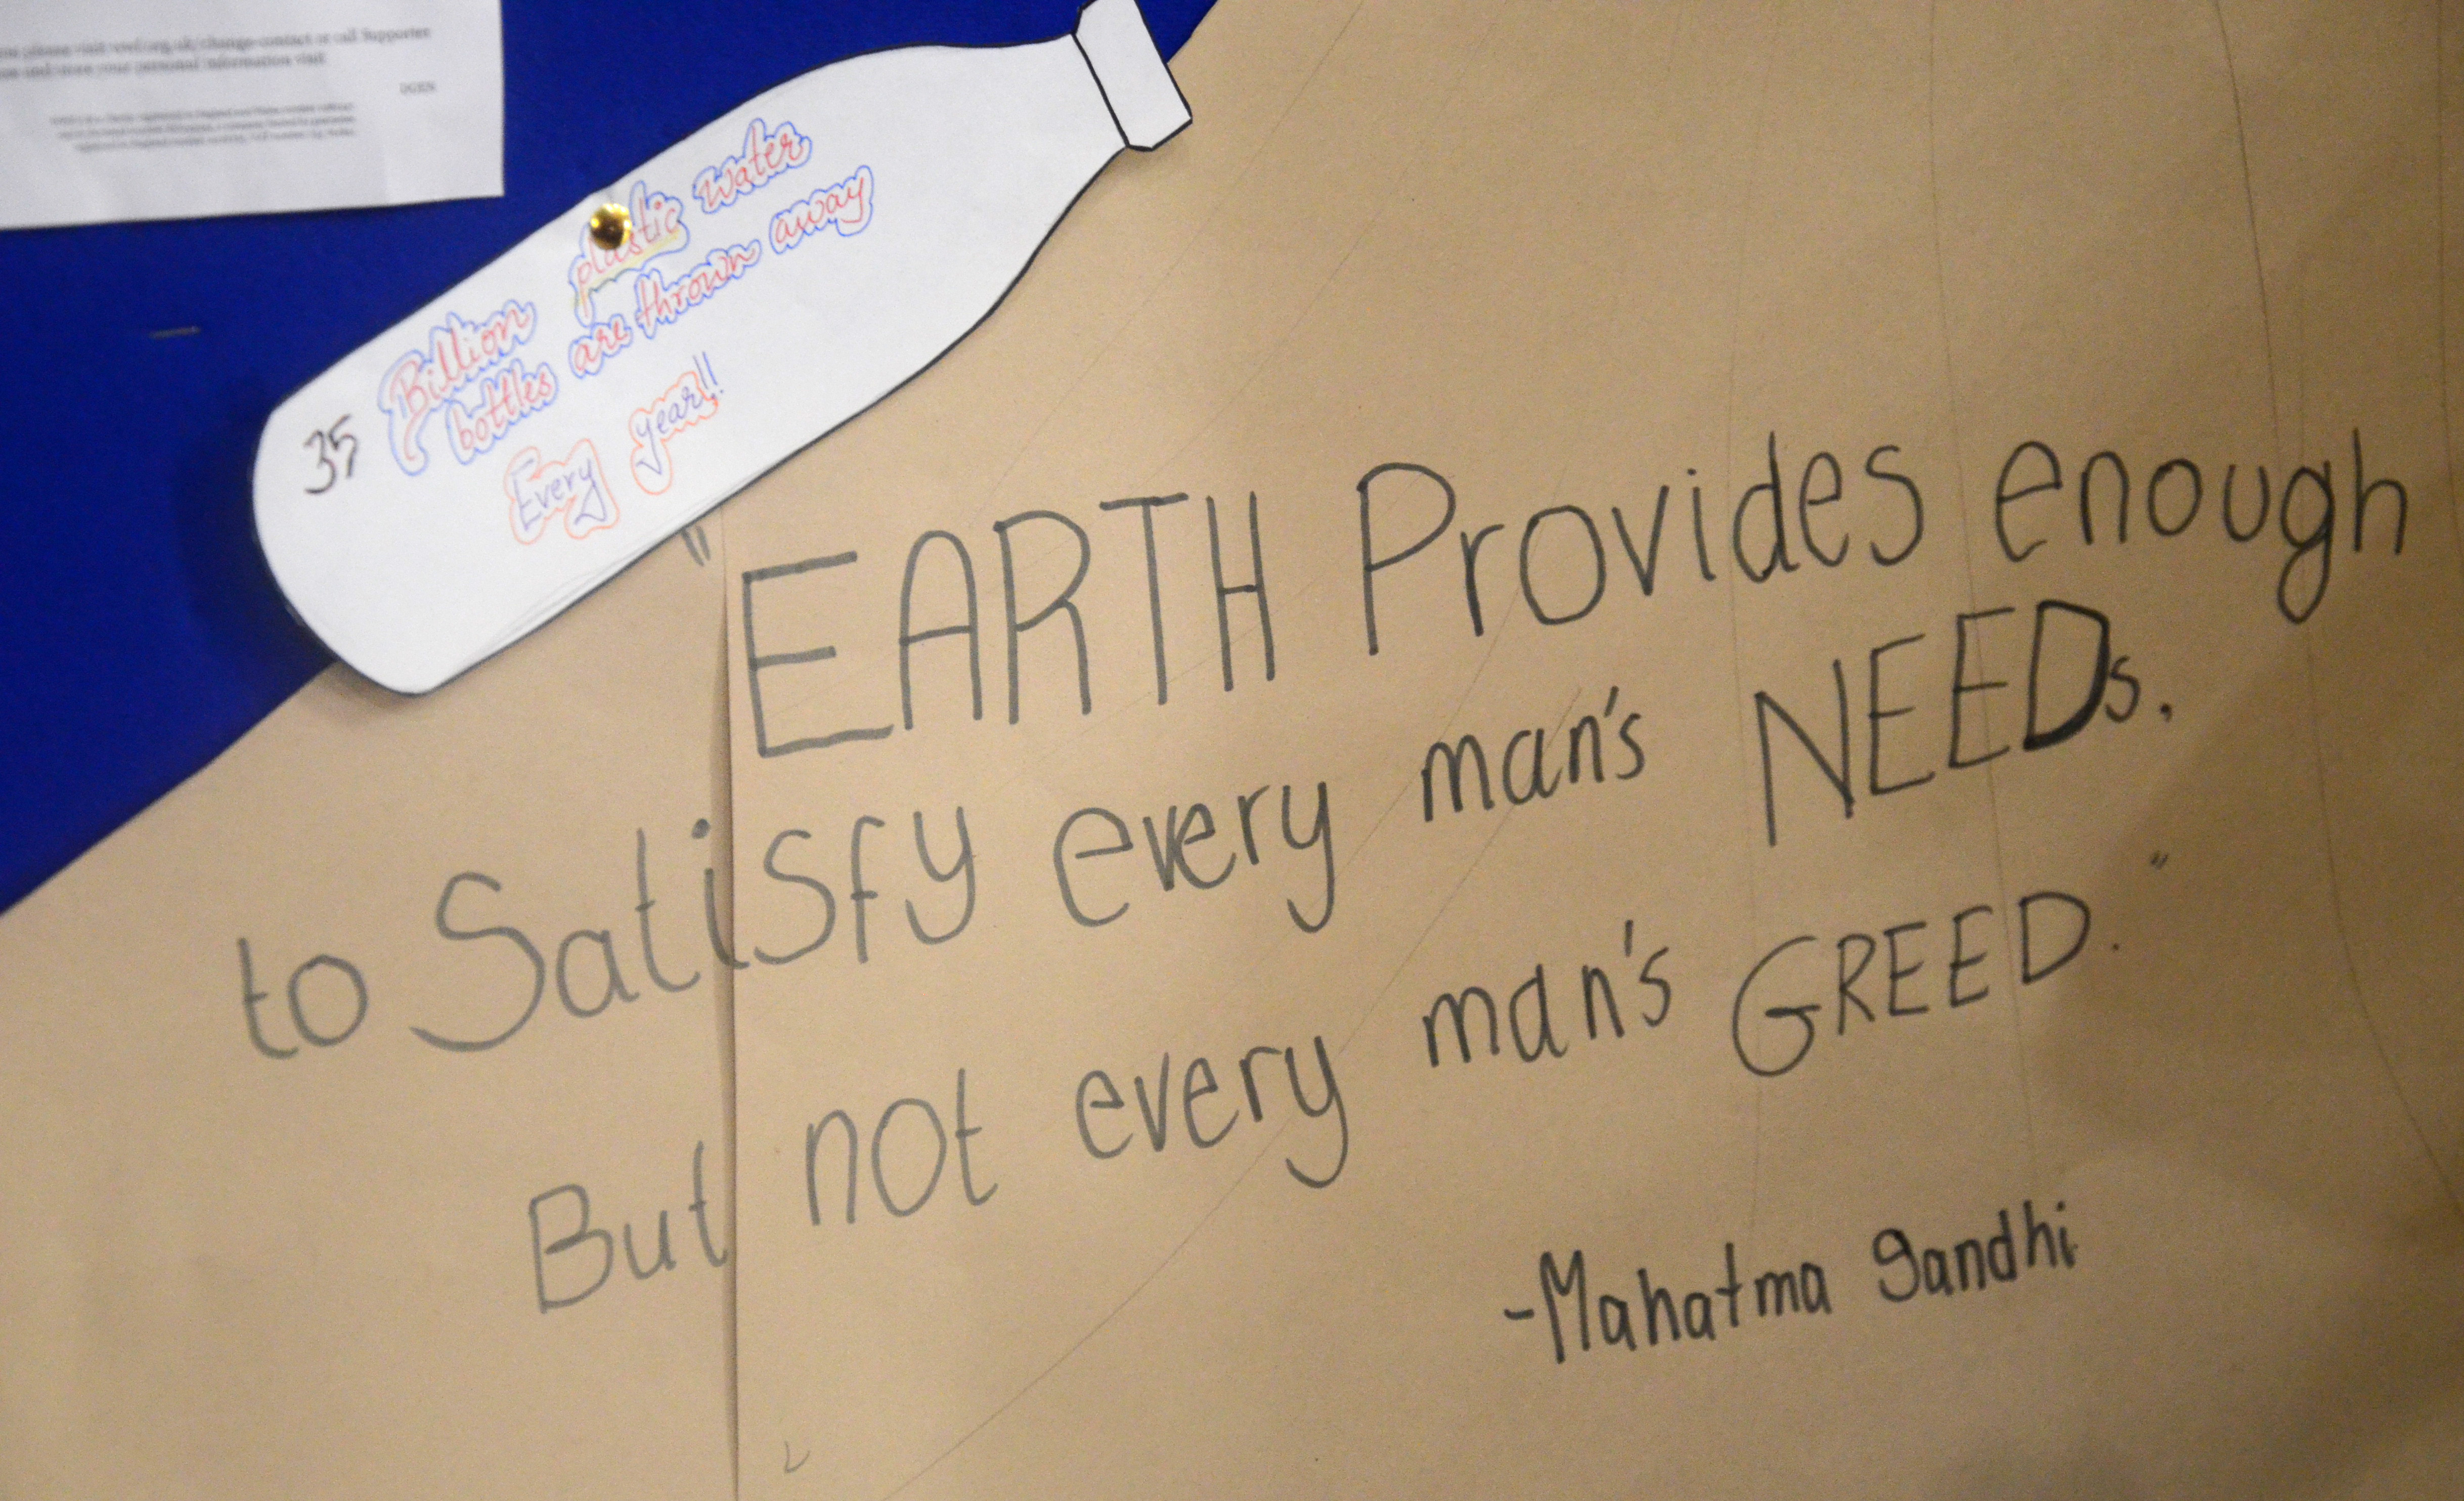 please visit wwf.org.uk/change-contact or call Supporter
and store your personal information visit
35 Billion plastic water
bottles are thrown away
Every year!!
"EARTH Provides enough
to Satisfy every man's NEEDs.
But not every man's GREED."
-Mahatma gandhi